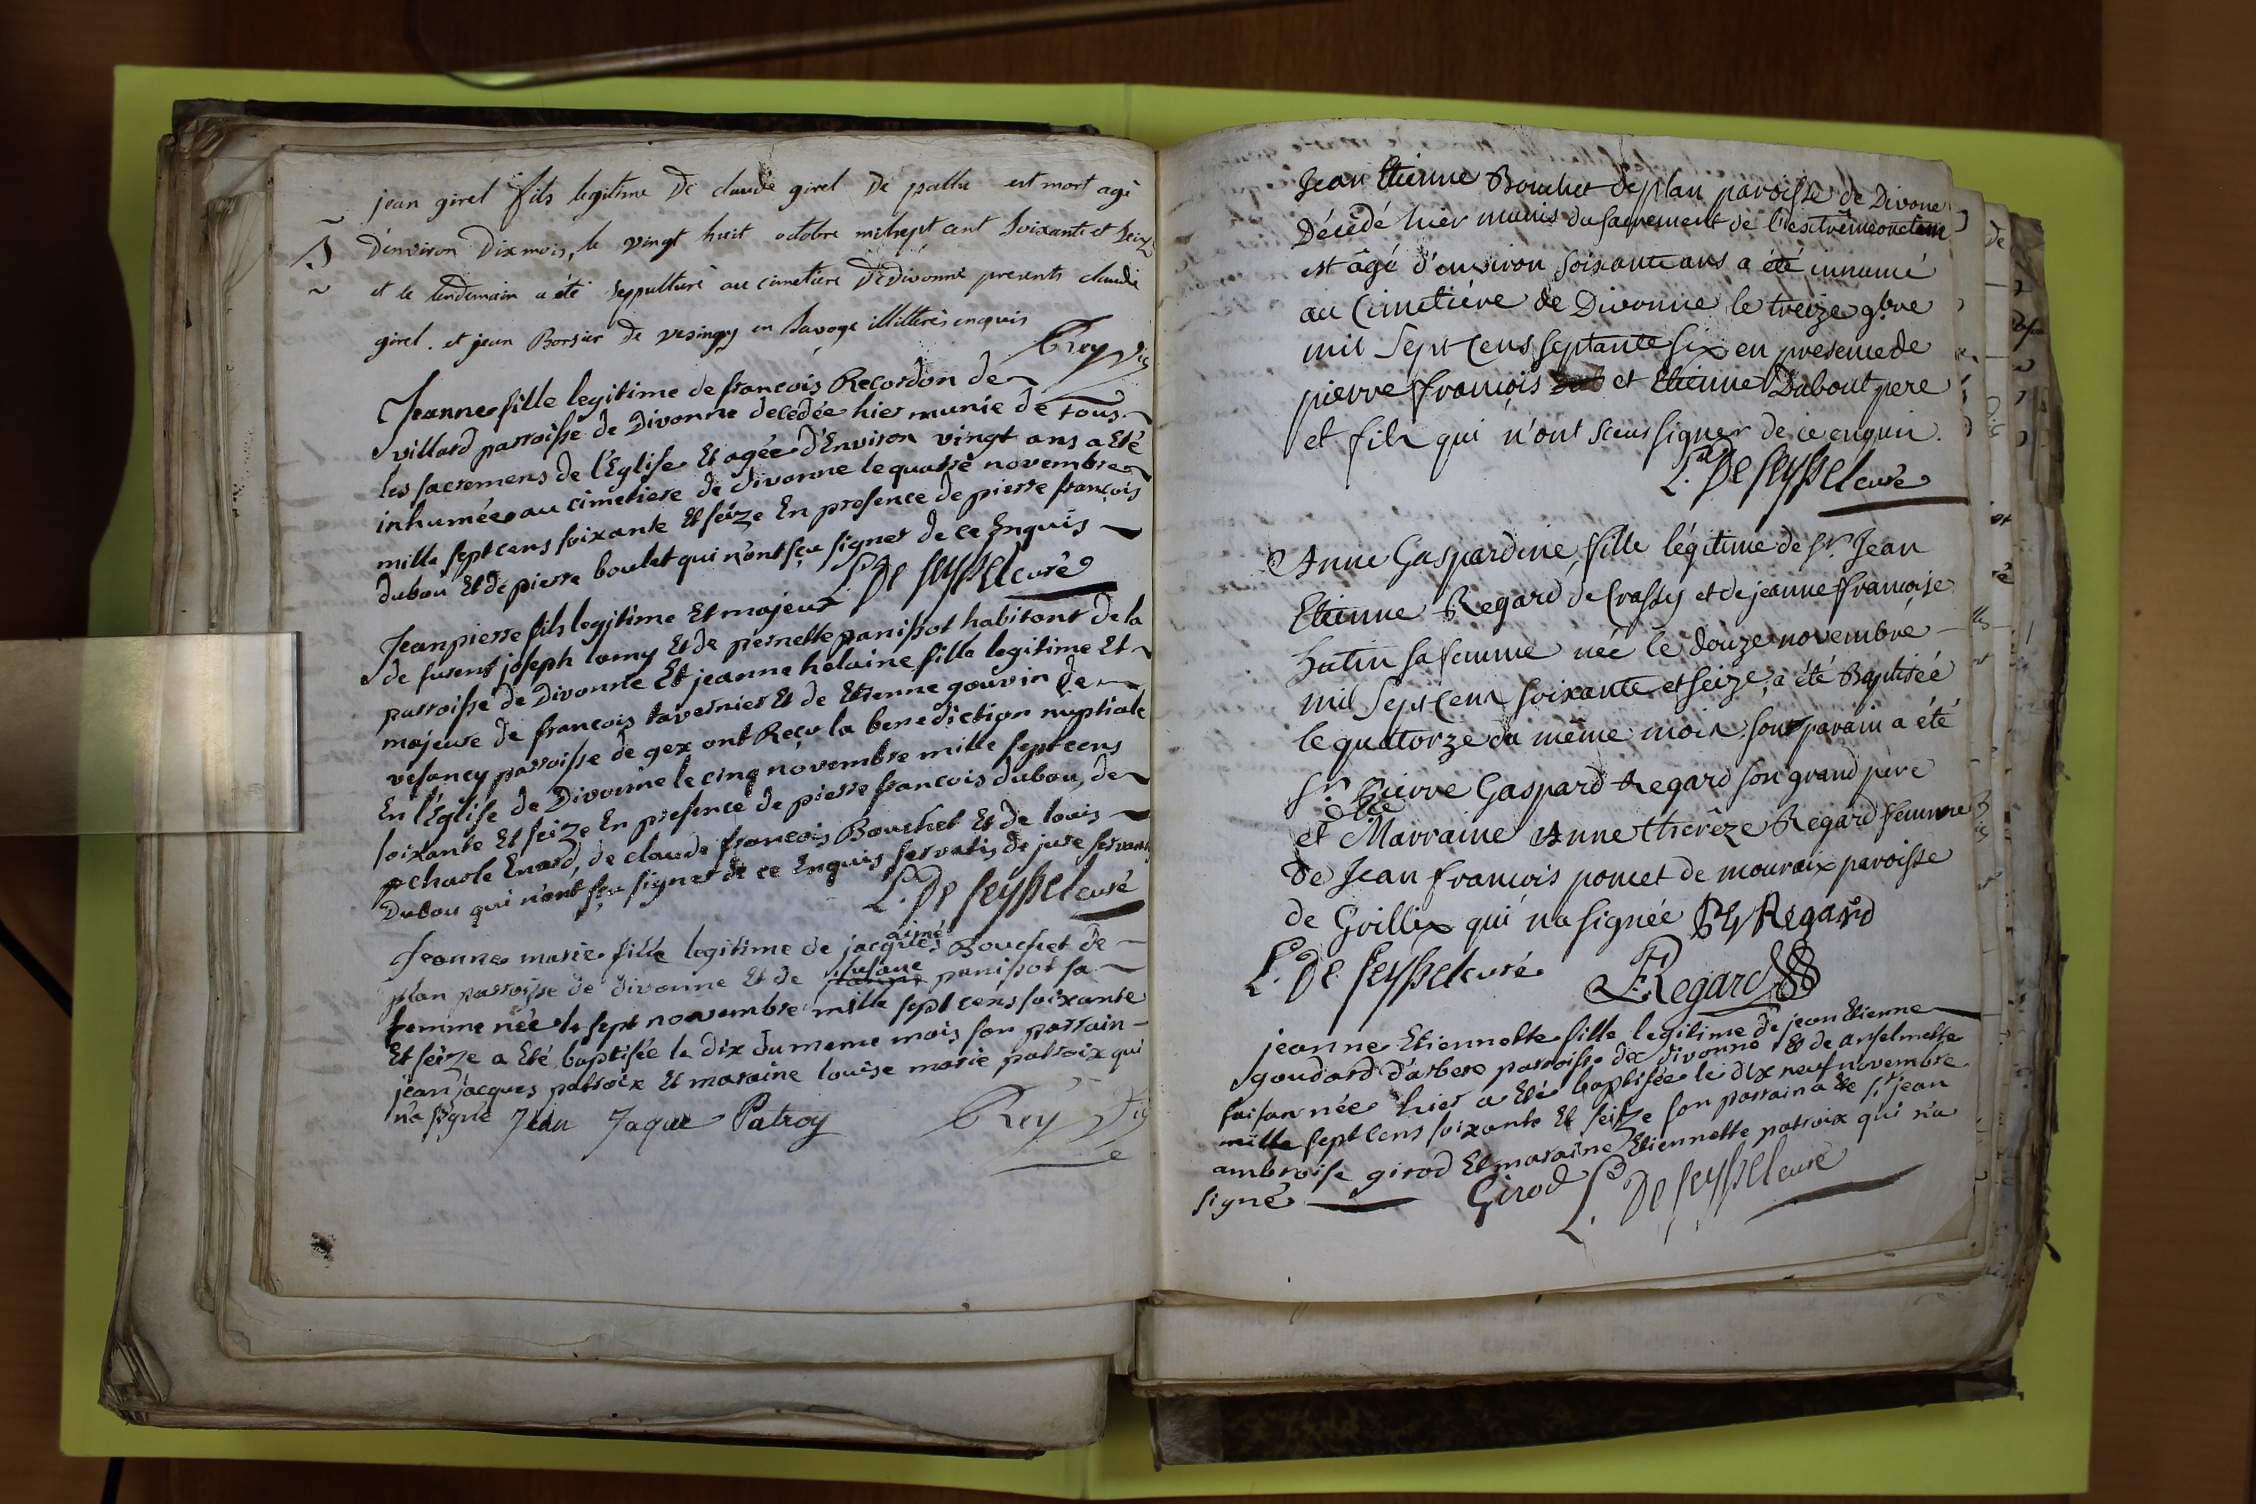 jean girel fils legitime De claude girel De pathu est mort agé
D'environ Dix mois, le vingt huit octobre mil sept cent soixante et seize
et le lendemain a été seppulturé au cimetiere De Divonne presents claude
girel. et jean Borsier de vesingy en Savoye illitterés enquis
Rey vic
Jeanne fille legitime de francois Recordon de
villard parroisse de Divonne decédée hier munie de tous
les sacremens de l'Eglise Et agée d'Environ vingt ans a Eté
inhumée au cimetiere de divonne le quatre novembre
mille sept cens soixante Et seize En presence de pierre françois
dubou Et de pierre boulet qui n'ont sçu signer de ce Enquis
L. De seyssel curé
Jean pierre fils legitime Et majeur
de fusent joseph lamy Et de pernette panissot habitant de la
parroisse de Divonne Et jeanne helaine fille legitime Et
majeure de francois tavernier Et de Etienne gouvin de
vesancy parroisse de gex ont Reçu la benediction nuptiale
En l'Eglise de Divonne le cinq novembre mille sept cens
soixante Et seize En presence de pierre francois dubou, de
charle Enard, de claude francois Bouchet Et de louis
Dubou qui n'ont sçu signer de ce Enquis servatis de jure servandis
L. De seyssel curé
aimé
Jeanne marie fille legitime de jacques Bouchet de
susane
plan parroisse de divonne Et de panissot sa
femme née le sept novembre mille sept cens soixante
Et seize a Eté baptisée le dix du meme mois son parrain
jean jacques patroix Et maraine louise marie patroix qui
n'a signé Jean Jaque Patroy
Rey Vic
Jean Etienne Bouchet de plan paroisse de Divone
Décédé hier munis du sacrement de l'extrêmeonction
et âgé d'environ soixante ans a été innumé
au Cimetiére de Divonne le treize 9bre
mil Sept Cens septante six en presence de
pierre François et Etienne Dubout pere
et fils qui n'ont sceus signer de ce enquis.
L. De seyssel curé
Anne Gaspardine, fille légitime de Sr. Jean
Etienne Regard de Crassy et de jeanne françoise
hutin sa femme née le douze novembre
mil Sept Cens soixante et seize, a été Baptisée
le quatorze du même mois. son parain a été
Sr. Pierre Gaspard Regard son grand pere
et Marraine Anne thérèze Regard femme
de Jean francois poncet de mouraix paroisse
de Grillix qui n'a signée PG Regard
L. De seyssel curé
Regard
jeanne Etiennette fille legitime de jean Etienne
goudard d'arbere parroisse de divonne Et de anselmette
faisan née hier a Eté baptisée le dix neuf novembre
mille sept cens soixante Et seize son parrain a Ete Sr. jean
ambroise girod Et maraine Etiennette patroix qui n'a
signé
Girod L. De seyssel curé